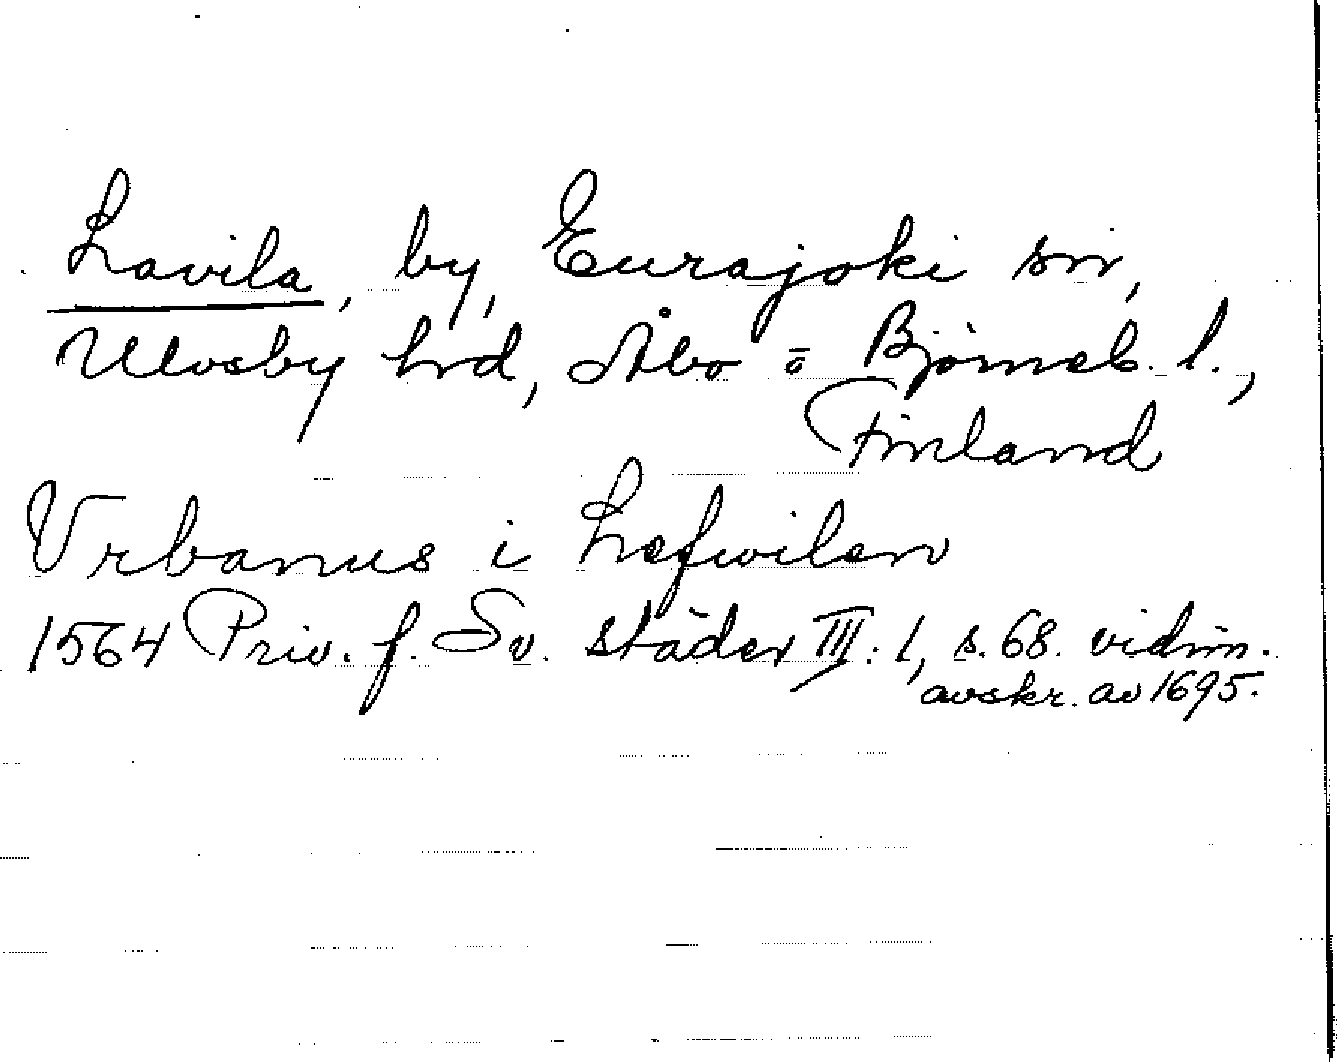 Lavila, by, Eurajoki sn,
Ulvsby hrd, Åbo o Björneb. l.,
Finland
Vrbanus i Lafwilan
1564 Priv. f. Sv. städer III: 1, s. 68. vidim.
avskr. av 1695.